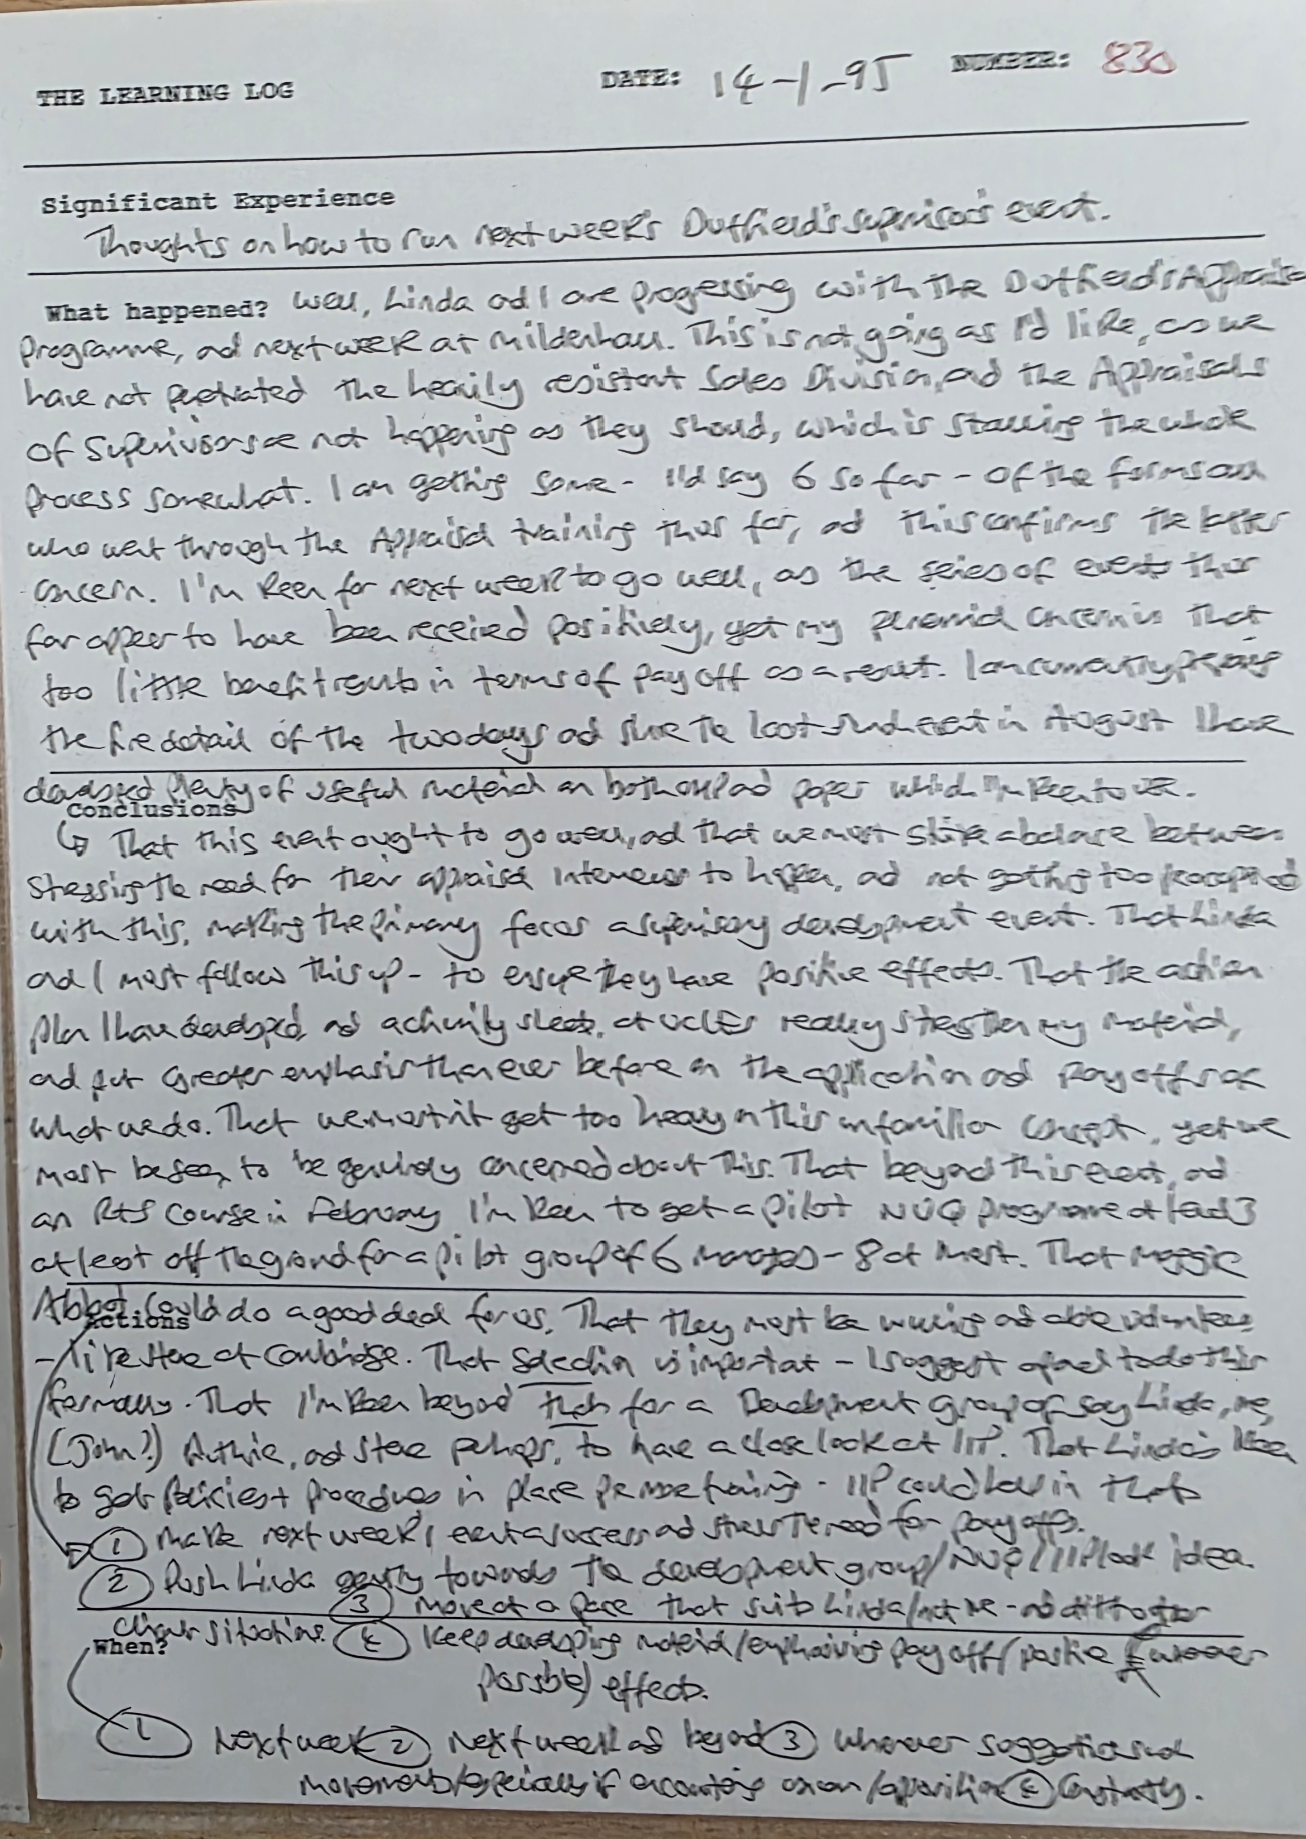 THE LEARNING LOG DATE: 14-1-95 NUMBER: 830
Significant Experience
Thoughts on how to run next week's Duffield's supervisor's event.
What happened? Well, Linda and I are progressing with the Duffield's Appraisal
Programme, and next week at Mildenhall. This is not going as I'd like, as we
have not penetrated the heavily resistant Sales Division, and the Appraisals
of Supervisors are not happening as they should, which is stalling the whole
process somewhat. I am getting some - I'd say 6 so far - of the forms
who went through the Appraisal training thus far, and this confirms the latter
concern. I'm keen for next week to go well, as the series of events thus
far appear to have been received positively, yet my perennial concern is that
too little benefit results in terms of pay off as a result. I am currently
the fine detail of the two days and since the last such event in August I have
developed plenty of useful material on both and paper which I'm keen to use.
Conclusions
↳ That this event ought to go well, and that we must strike a balance between
stressing the need for their appraisal interviews to happen, and not getting too preoccupied
with this, making the primary focus a supervisory development event. That Linda
and I must follow this up - to ensure they have positive effects. That the action
plan I have developed, and activity sheets, at UCLES really strengthen my material,
and put greater emphasis than ever before on the application and pay offs of
what we do. That we mustn't get too heavy on this unfamiliar concept, yet we
must be seen to be genuinely concerned about this. That beyond this event, and
an RTS course in February I'm keen to get a pilot NVQ programme at level 3
at least off the ground for a pilot group of 6 managers - 8 at most. That Maggie
Abbot could do a good deal for us. That they must be willing and able volunteers
Actions
- like Steve at Cambridge. That selection is important - I suggest a panel to do this
formally. That I'm keen beyond that for a Development group of say Linda, me,
(John?) Authie, and Steve perhaps, to have a close look at IIP. That Linda's keen
to get policies + procedures in place training - IIP could tie in that
① Make next week's event a success and stress the need for pay offs.
② Push Linda gently towards the development group/NVQ/IIP look idea.
③ Move at a pace that suits Linda/not me - and ditto for
other situations. ④ Keep developing material/emphasising pay off/positive (wherever
When?
possible) effects.
① Next week ② Next week and beyond ③ Whenever suggestions and
movements/especially if encountering /opposition ④ Constantly.